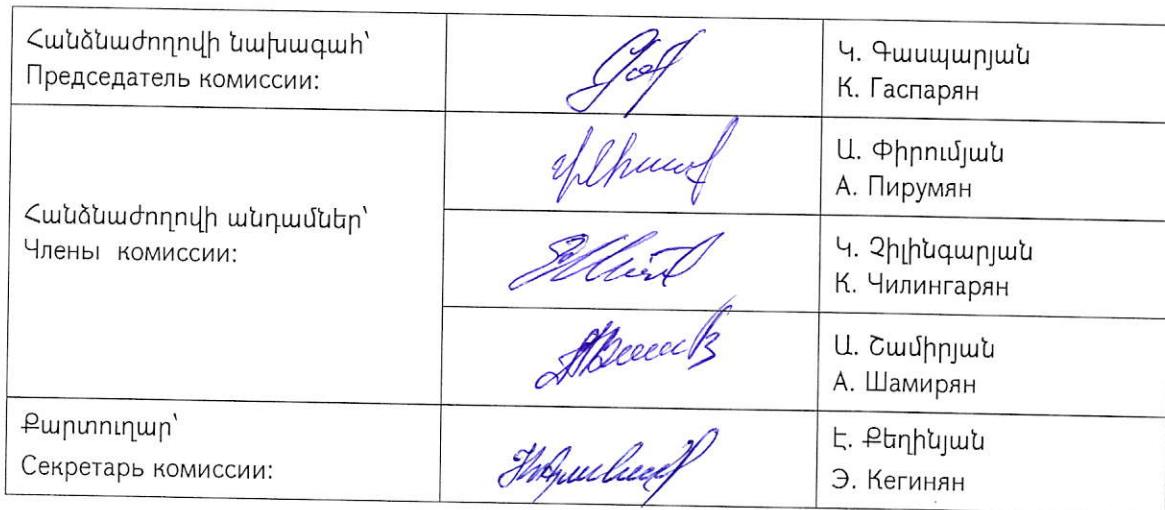 Հանձնաժողովի նախագահ՝
Председатель комиссии:
Կ. Գասպարյան
К. Гаспарян
Ա. Փիրումյան
А. Пирумян
Հանձնաժողովի անդամներ՝
Члены комиссии:
Կ. Չիլինգարյան
К. Чилингарян
Ա. Շամիրյան
А. Шамирян
Քարտուղար՝
Секретарь комиссии:
Է. Քեղինյան
Э. Кегинян